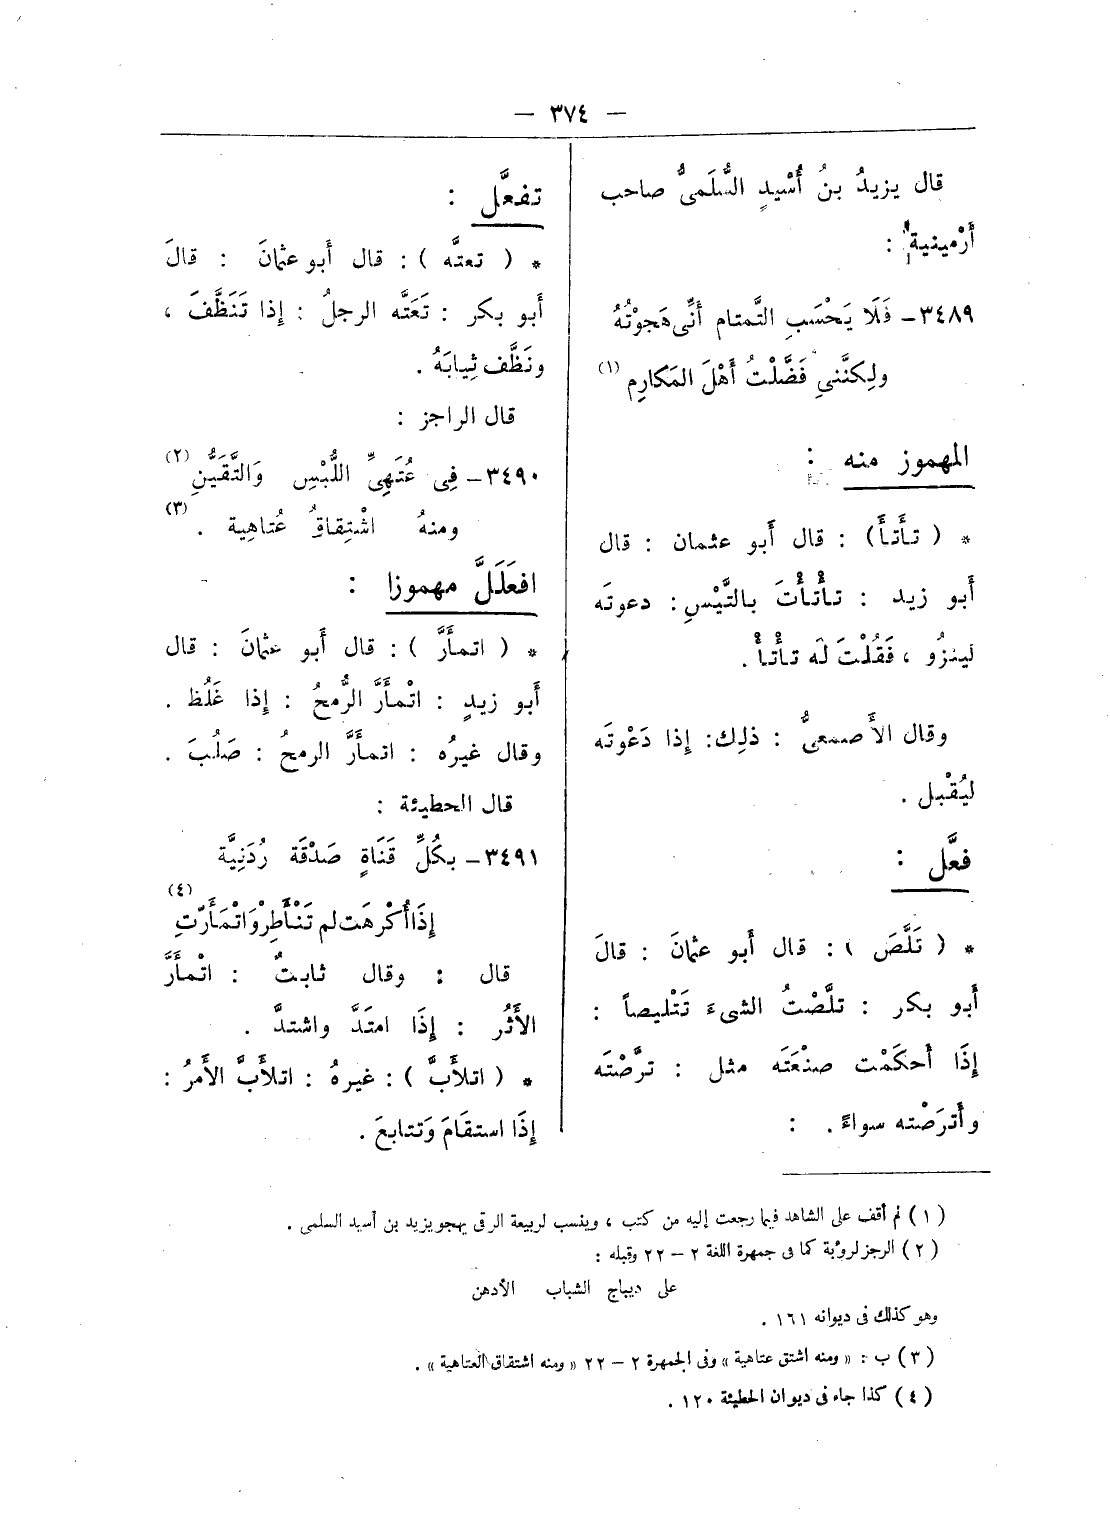 — ٣٧٤ —
قال يزيدُ بنُ أُسْيدٍ السُّلَمىُّ صاحب
أَرْمينية :
٣٤٨٩– فَلَا يَحْسَبِ التَّمتام أَنِّى هَجوْتُهُ
ولِكنَّنىِ فَضَّلْتُ أَهْلَ المَكارِم (١)
المهموز منه :
* ( تأَتأَ ) : قال أَبو عثمان : قال
أَبو زيد : تأْتأْتَ بالتَّيْسِ : دعوتَه
لينزُو ، فَقُلْتَ لَه تأْتأْ .
وقال الأَصمعىُّ : ذلِك : إِذا دَعْوتَه
ليُقْبل .
فعَّل :
* ( تَلَّصَ ) : قال أَبو عثمانَ : قالَ
أَبو بكر : تلَّصْتُ الشىءَ تَتْليصاً :
إِذَا أَحكَمْت صنْعَتَه مثل : ترَّصْتَه
وأَترَصْته سواءً . :
تفعَّل :
* ( تعتَّه ) : قال أَبو عثمانَ : قالَ
أَبو بكر : تَعَتَّه الرجلُ : إِذا تَنَظَّفَ ،
ونَظَّف ثِيابَهُ .
قال الراجز :
٣٤٩٠– فِى عُتَهِىِّ اللُّبْسِ وَالتَّقَيُّنِ (٢)
ومنهُ اشْتِقاقُ عُتاهِية . (٣)
افعَلَلَّ مهموزا :
* ( اتمأَرَّ ) : قال أَبو عثمانَ : قال
أَبو زيدٍ : اتْمأَرَّ الرُّمحُ : إِذا غَلُظ .
وقال غيرُه : اتمأَرَّ الرمحُ : صَلُبَ .
قال الحطيئة :
٣٤٩١– بكُلِّ قَنَاةٍ صَدْقَة رُدَنِيَّة
إِذَا أُكْرِهَت لم تَنْأَطِرْ وَاتْمَأَرّتِ (٤)
قال : وقال ثابتٌ : اتْمأَرَّ
الأَثُر : إِذَا امتَدَّ واشتدَّ .
* ( اتلأَبَّ ) : غيرهُ : اتلأَبَّ الأَمرُ :
إِذَا استقَامَ وَتتابعَ .
( ١ ) لم أقف على الشاهد فيما رجعت إليه من كتب ، وينسب لربيعة الرقى يهجو يزيد بن أسيد السلمى .
( ٢ ) الرجز لرؤبة كما فى جمهرة اللغة ٢ – ٢٢ وقبله :
على ديباج الشباب الأدهن
وهو كذلك فى ديوانه ١٦١ .
( ٣ ) ب : « ومنه اشتق عتاهية » وفى الجمهرة ٢ – ٢٢ « ومنه اشتقاق العتاهية » .
( ٤ ) كذا جاء فى ديوان الحطيئة ١٢٠ .